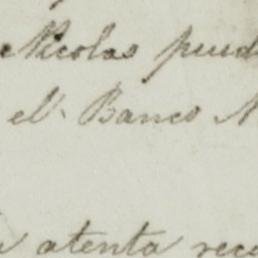 Nicolas pued
el Banco N
atenta rec